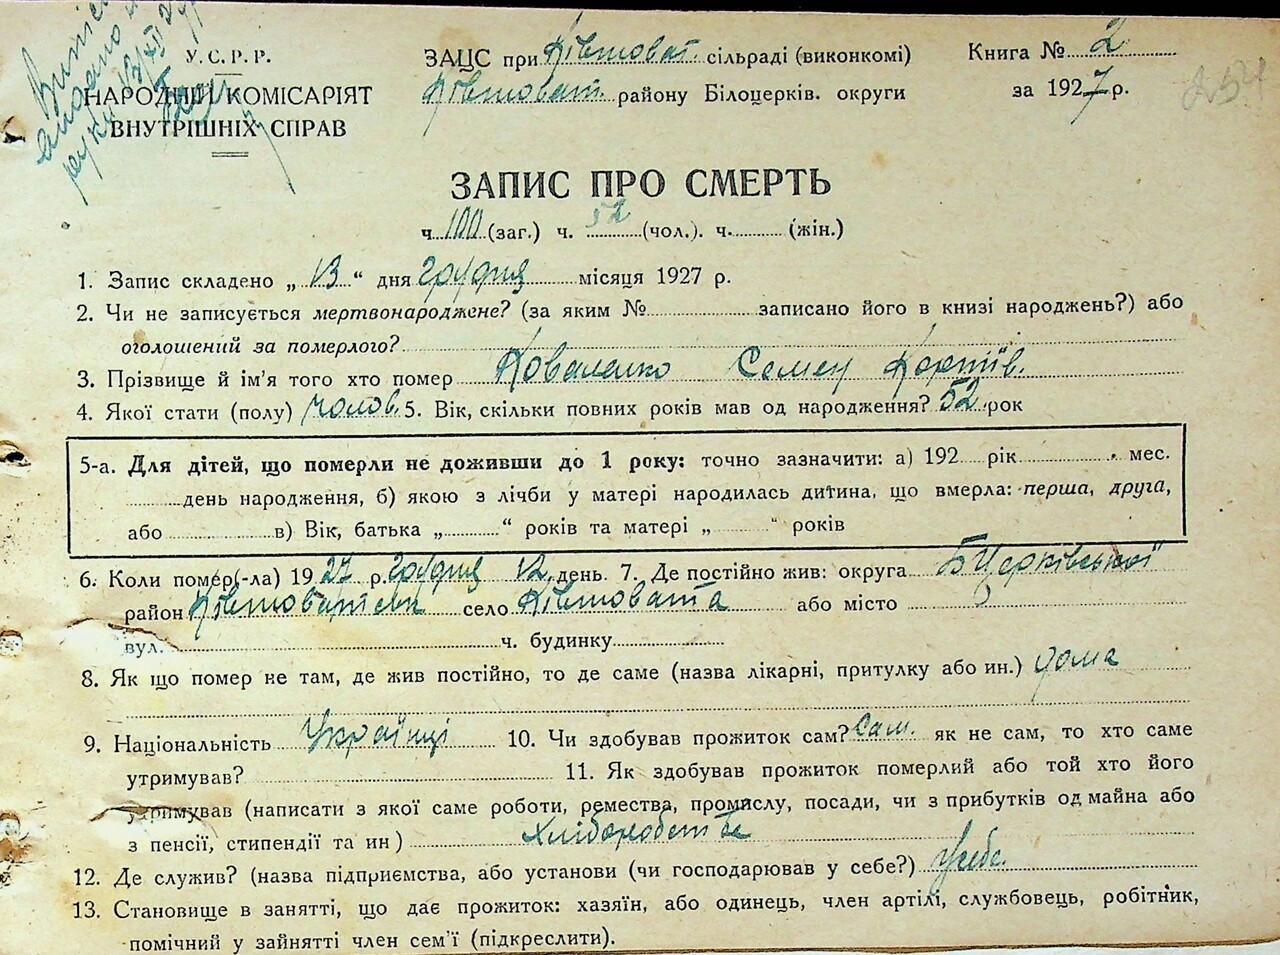 У.С.Р.Р.
НАРОДНІЙ КОМІСАРІЯТ
ВНУТРІШНІХ СПРАВ
ЗАЦС при Ківшоват. сільраді (виконкомі)
Ківшоват. району Білоцерків. округи
Книга № 2
за 1927 р.
254
ЗАПИС ПРО СМЕРТЬ
ч. 100 (заг.) ч. 52 (чол.). ч. (жін.)
1. Запис складено „ 13 “ дня грудня місяця 1927 р.
2. Чи не записується мертвонароджене? (за яким № записано його в книзі народжень?) або
оголошений за померлого?
3. Прізвище й ім'я того хто помер Коваленко Семен
4. Якої стати (полу) чолов. 5. Вік, скільки повних років мав од народження? 52 рок
5-а. Для дітей, що померли не доживши до 1 року: точно зазначити: а) 192 рік мес.
день народження, б) якою з лічби у матері народилась дитина, що вмерла: перша, друга,
або в) Вік, батька „ “ років та матері „ “ років
6. Коли помер(-ла) 1927 р. грудня 12 день. 7. Де постійно жив: округа БЦерківської
район село Ківшовата або місто
вул. ч. будинку
8. Як що помер не там, де жив постійно, то де саме (назва лікарні, притулку або ин.) дома
9. Національність Українці 10. Чи здобував прожиток сам? Сам. як не сам, то хто саме
утримував? 11. Як здобував прожиток померлий або той хто його
утримував (написати з якої саме роботи, ремества, промислу, посади, чи з прибутків од майна або
з пенсії, стипендії та ин) хліборобства
12. Де служив? (назва підприємства, або установи (чи господарював у себе?) у себе.
13. Становище в занятті, що дає прожиток: хазяїн, або одинець, член артілі, службовець, робітник,
помічний у зайнятті член сем'ї (підкреслити).